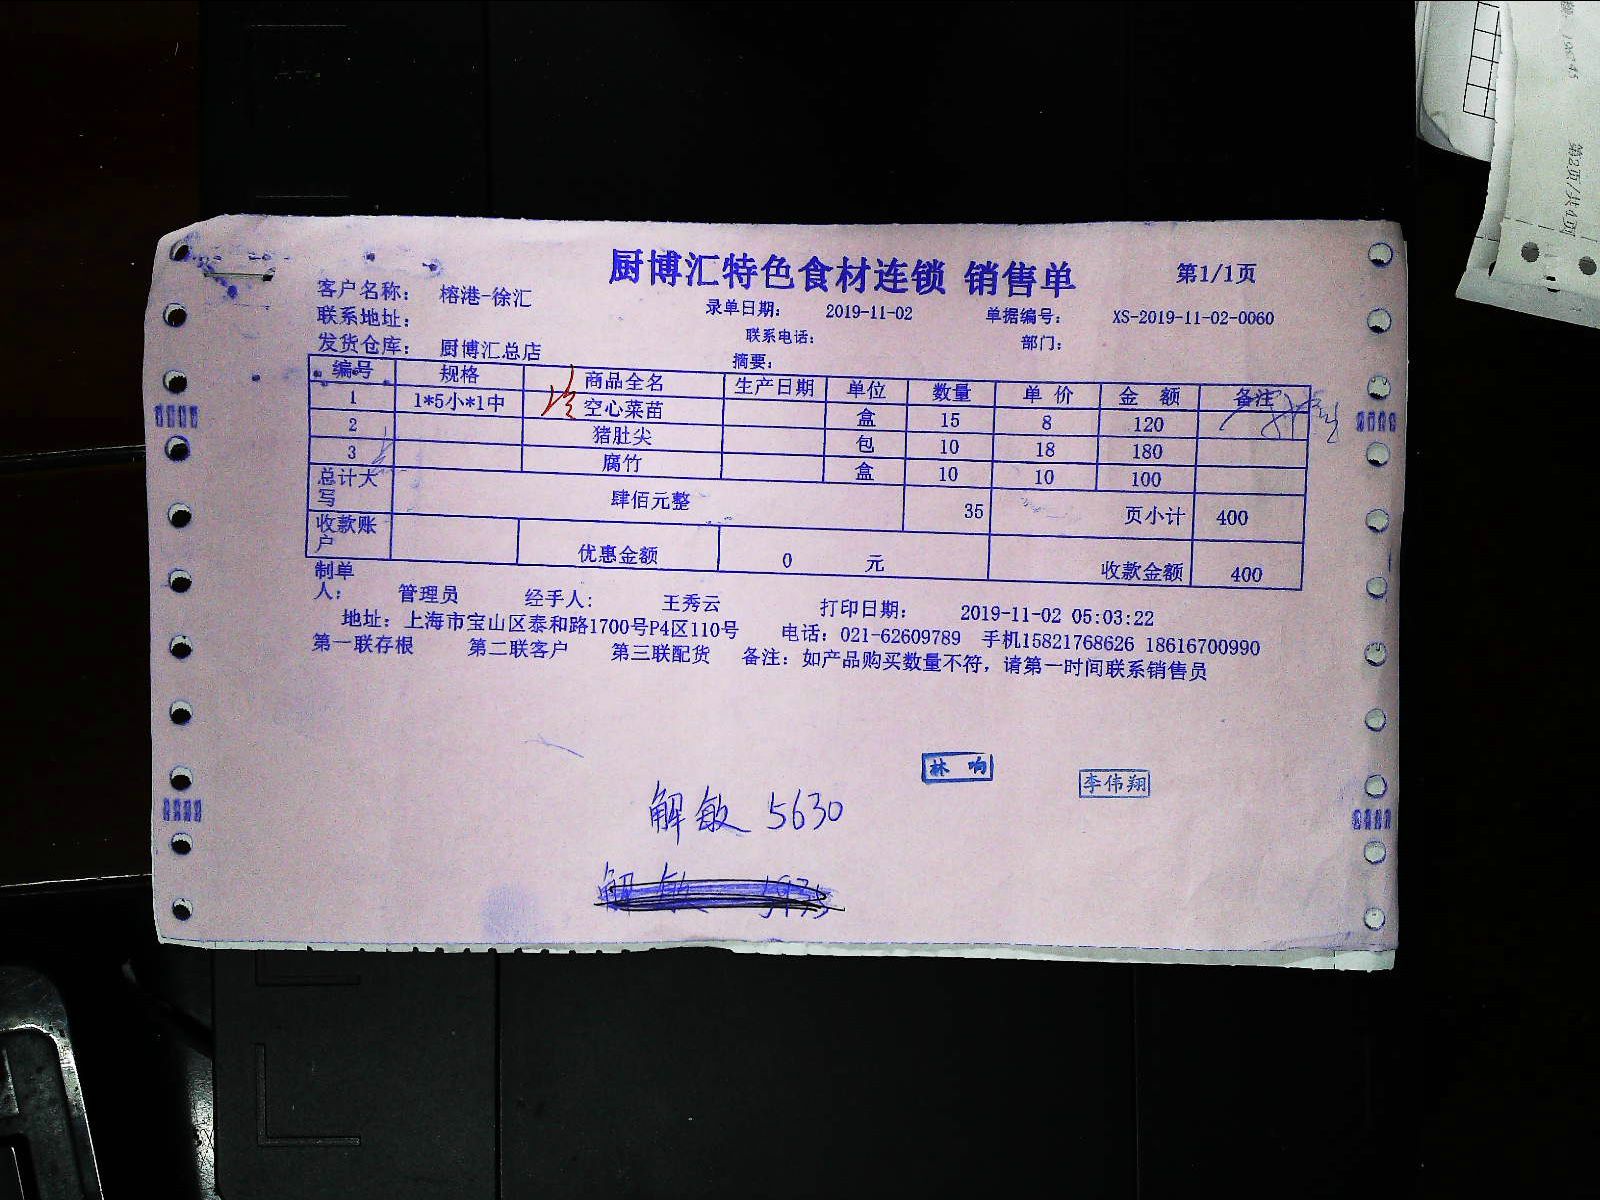 厨博汇特色食材连锁 销售单 第1/1页
客户名称： 榕港-徐汇 录单日期： 2019-11-02 单据编号： XS-2019-11-02-0060
联系地址： 联系电话： 部门：
发货仓库： 厨博汇总店 摘要：
编号 规格 商品全名 生产日期 单位 数量 单 价 金 额 备注
1 1*5小*1中 空心菜苗 盒 15 8 120
2 猪肚尖 包 10 18 180
3 腐竹 盒 10 10 100
总计大写 肆佰元整 35 页小计 400
收款账户 优惠金额 0 元 收款金额 400
制单人： 管理员 经手人： 王秀云 打印日期： 2019-11-02 05:03:22
地址：上海市宝山区泰和路1700号P4区110号 电话：021-62609789 手机15821768626 18616700990
第一联存根 第二联客户 第三联配货 备注：如产品购买数量不符，请第一时间联系销售员
林 响
李伟翔
解敏 5630
第2页/共4页